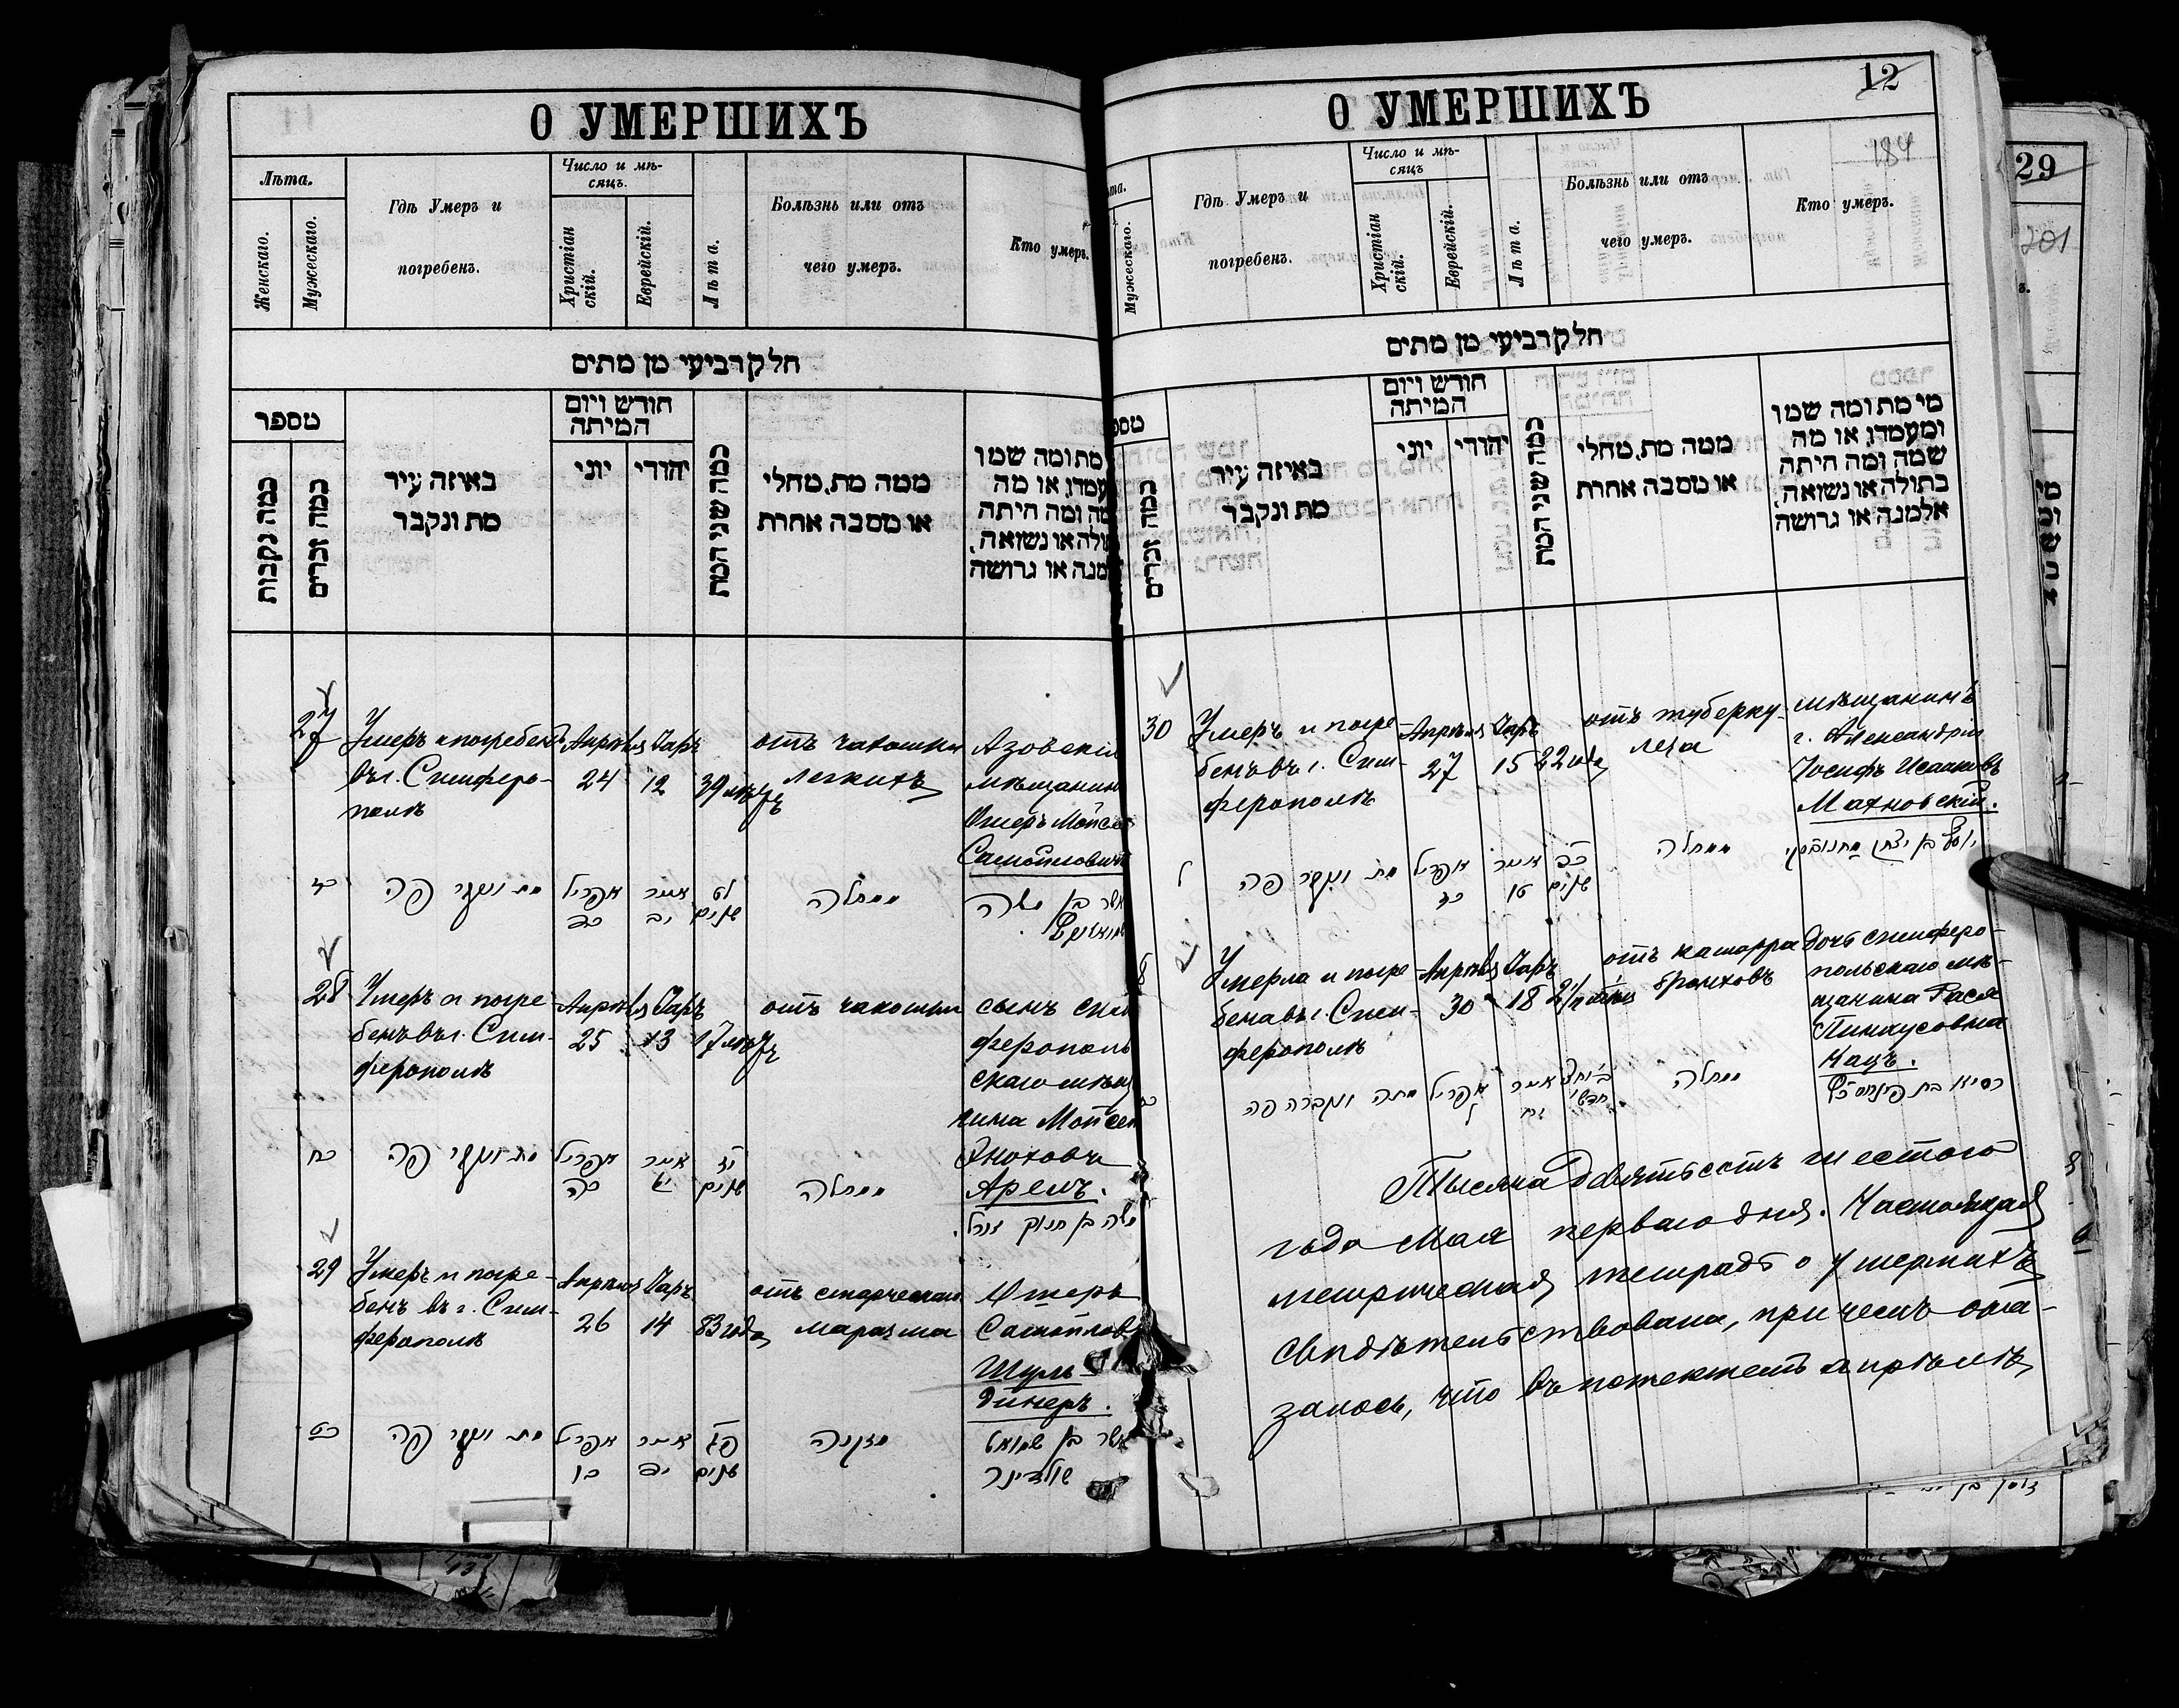 О УМЕРШИХЪ
Лѣта.
Женскаго.
Мужескаго.
Гдѣ Умеръ и
погребенъ.
Число и мѣ-
сяцъ.
Христіан
скій.
Еврейскій.
Лѣта.
Болѣзнь или отъ
чего умеръ.
Кто умеръ.
חלק רביעי מן מתים
מספר
כמה נקבות
כמה זכרים
באיזה עיר
מת ונקבר
חודש ויום
המיתה
יוני
יהודי
כמה שני המת
ממה מת, מחלי
או מסבה אחרת
מת ומה שמו
עמדו, או מה
מה ומה היתה
ולה או נשואה,
מנה או גרושה
27
Умеръ и погребенъ
въ г. Симферо-
полѣ
Апрѣля
24
Іаръ
12
39 лѣтъ
отъ чахотки
легкихъ
Азовскій
мѣщанинъ
Ошеръ Мойсе
Самойловичъ
כז
מת ונקבר פה
אפריל
כד
אייר
יב
לט
שנים
ממחלה
אשר בן משה
28
Умеръ и погре
бенъ въ г. Сим-
ферополѣ
Апрѣля
25
Іаръ
13
17 лѣтъ
отъ чахотки
сынъ сим
ферополь
скаго мѣщ
нина Мойсей
Эноховъ
Аренъ.
כח
מת ונקבר פה
אפריל
כה
אייר
יג
יז
שנים
ממחלה
משה בן חנוך
29
Умеръ и погре-
бенъ въ г. Сим-
ферополѣ
Апрѣля
26
Іаръ
14
83 года
отъ старческаго
маразма
Ошеръ
Самойлов
Шуль-
динеръ.
כט
מת ונקבר פה
אפריל
כו
אייר
יד
פג
שנים
מזקנה
אשר בן שמואל
שולדינר
О УМЕРШИХЪ
12
184
та.
Мужескаго.
Гдѣ Умеръ и
погребенъ.
Число и мѣ-
сяцъ
Христіан
скій.
Еврейскій.
Лѣта.
Болѣзнь или отъ
чего умеръ.
Кто умеръ.
חלק רביעי מן מתים
מספ
כמה זכרים
באיזה עיר
מת ונקבר
חודש ויום
המיתה
יוני
יהודי
כמה שני המת
ממה מת, מחלי
או מסבה אחרת
מי מת ומה שמו
ומעמדו, או מה
שמה ומה היתה
בתולה או נשואה,
אלמנה או גרושה
30
Умеръ и погре-
бенъ въ г. Сим-
ферополѣ
Апрѣля
27
Іаръ
15
22 года
отъ туберку-
леза
мѣщанинъ
г. Александріи
Іосифъ Исааковъ
Махновскій.
ל
מת ונקבר פה
אפריל
כז
אייר
טו
כב
שנים
ממחלה
יוסף בן יצחק מחנובסקי
Умерла и погре-
бена въ г. Сим-
ферополѣ
Апрѣля
30
Іаръ
18
отъ катарра
бронховъ
дочь симферо-
польскаго мѣ-
щанина Рася
Пинхусовна
Кацъ.
מתה ונקברה פה
אפריל
ל
אייר
יח
חדשי
ממחלה
רסיא בת פינחס כץ
Тысяча девятьсотъ шестого
года Мая перваго дня. Настоящая
метрическая тетрадь о умершихъ
свидѣтельствована, при чемъ ока-
залось, что въ истекшемъ апрѣлѣ
29
201